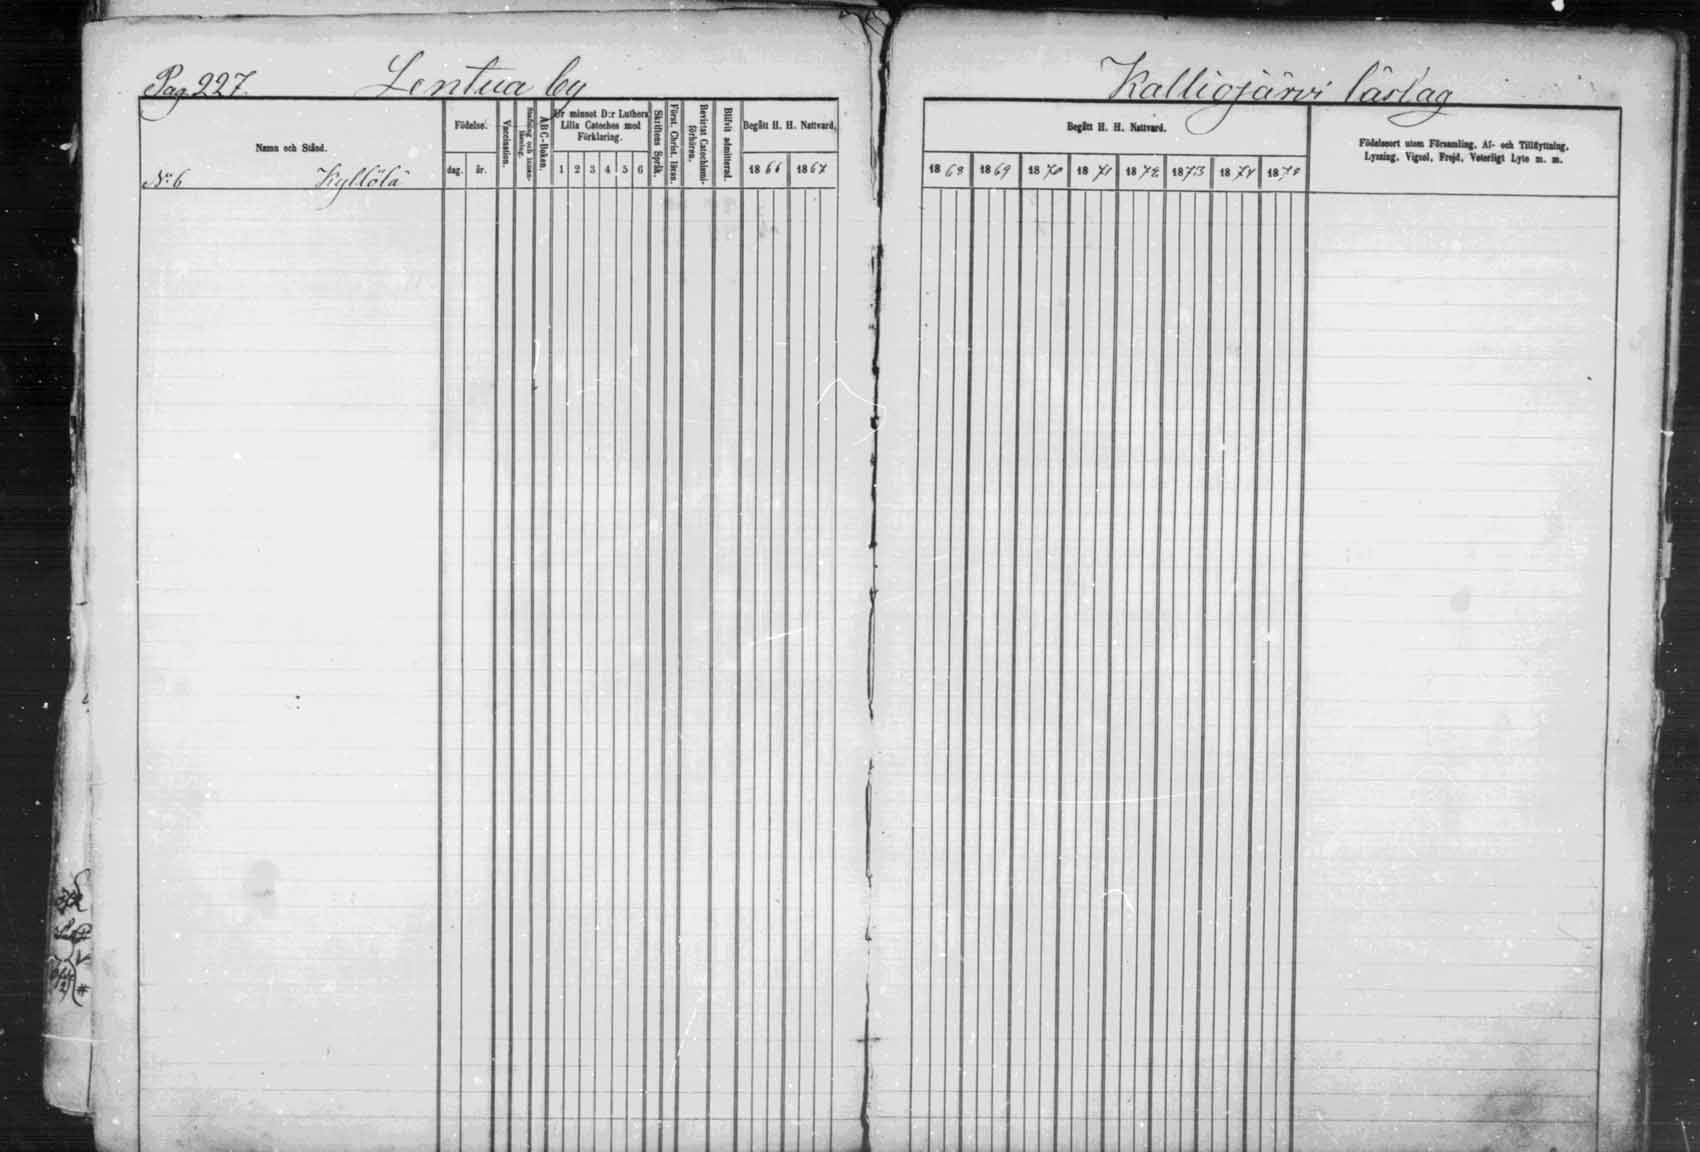 Pag 227.
Lentua by
Kalliojärvi läslag
Namn och Stånd.
No 6 Kyllölä
Födelse.
dag. år.
Vaccination.
ABC-Boken.
Ur minnot D:r Luthers
Lilla Cateches med
Förklaring.
1 2 3 4 5 6
Skriftens Språk.
Först. Christ. läran.
Bevistat Catechismi-
förhören.
Blifvit admitterad.
Begått H. H. Nattvard.
1866 1867
Begått H. H. Nattvard.
1868 1869 1870 1871 1872 1873 1874 1875
Födelseort utom Församling, Af- och Tillflyttning,
Lysning, Vigsel, Frejd, Veterligt Lyte m. m.